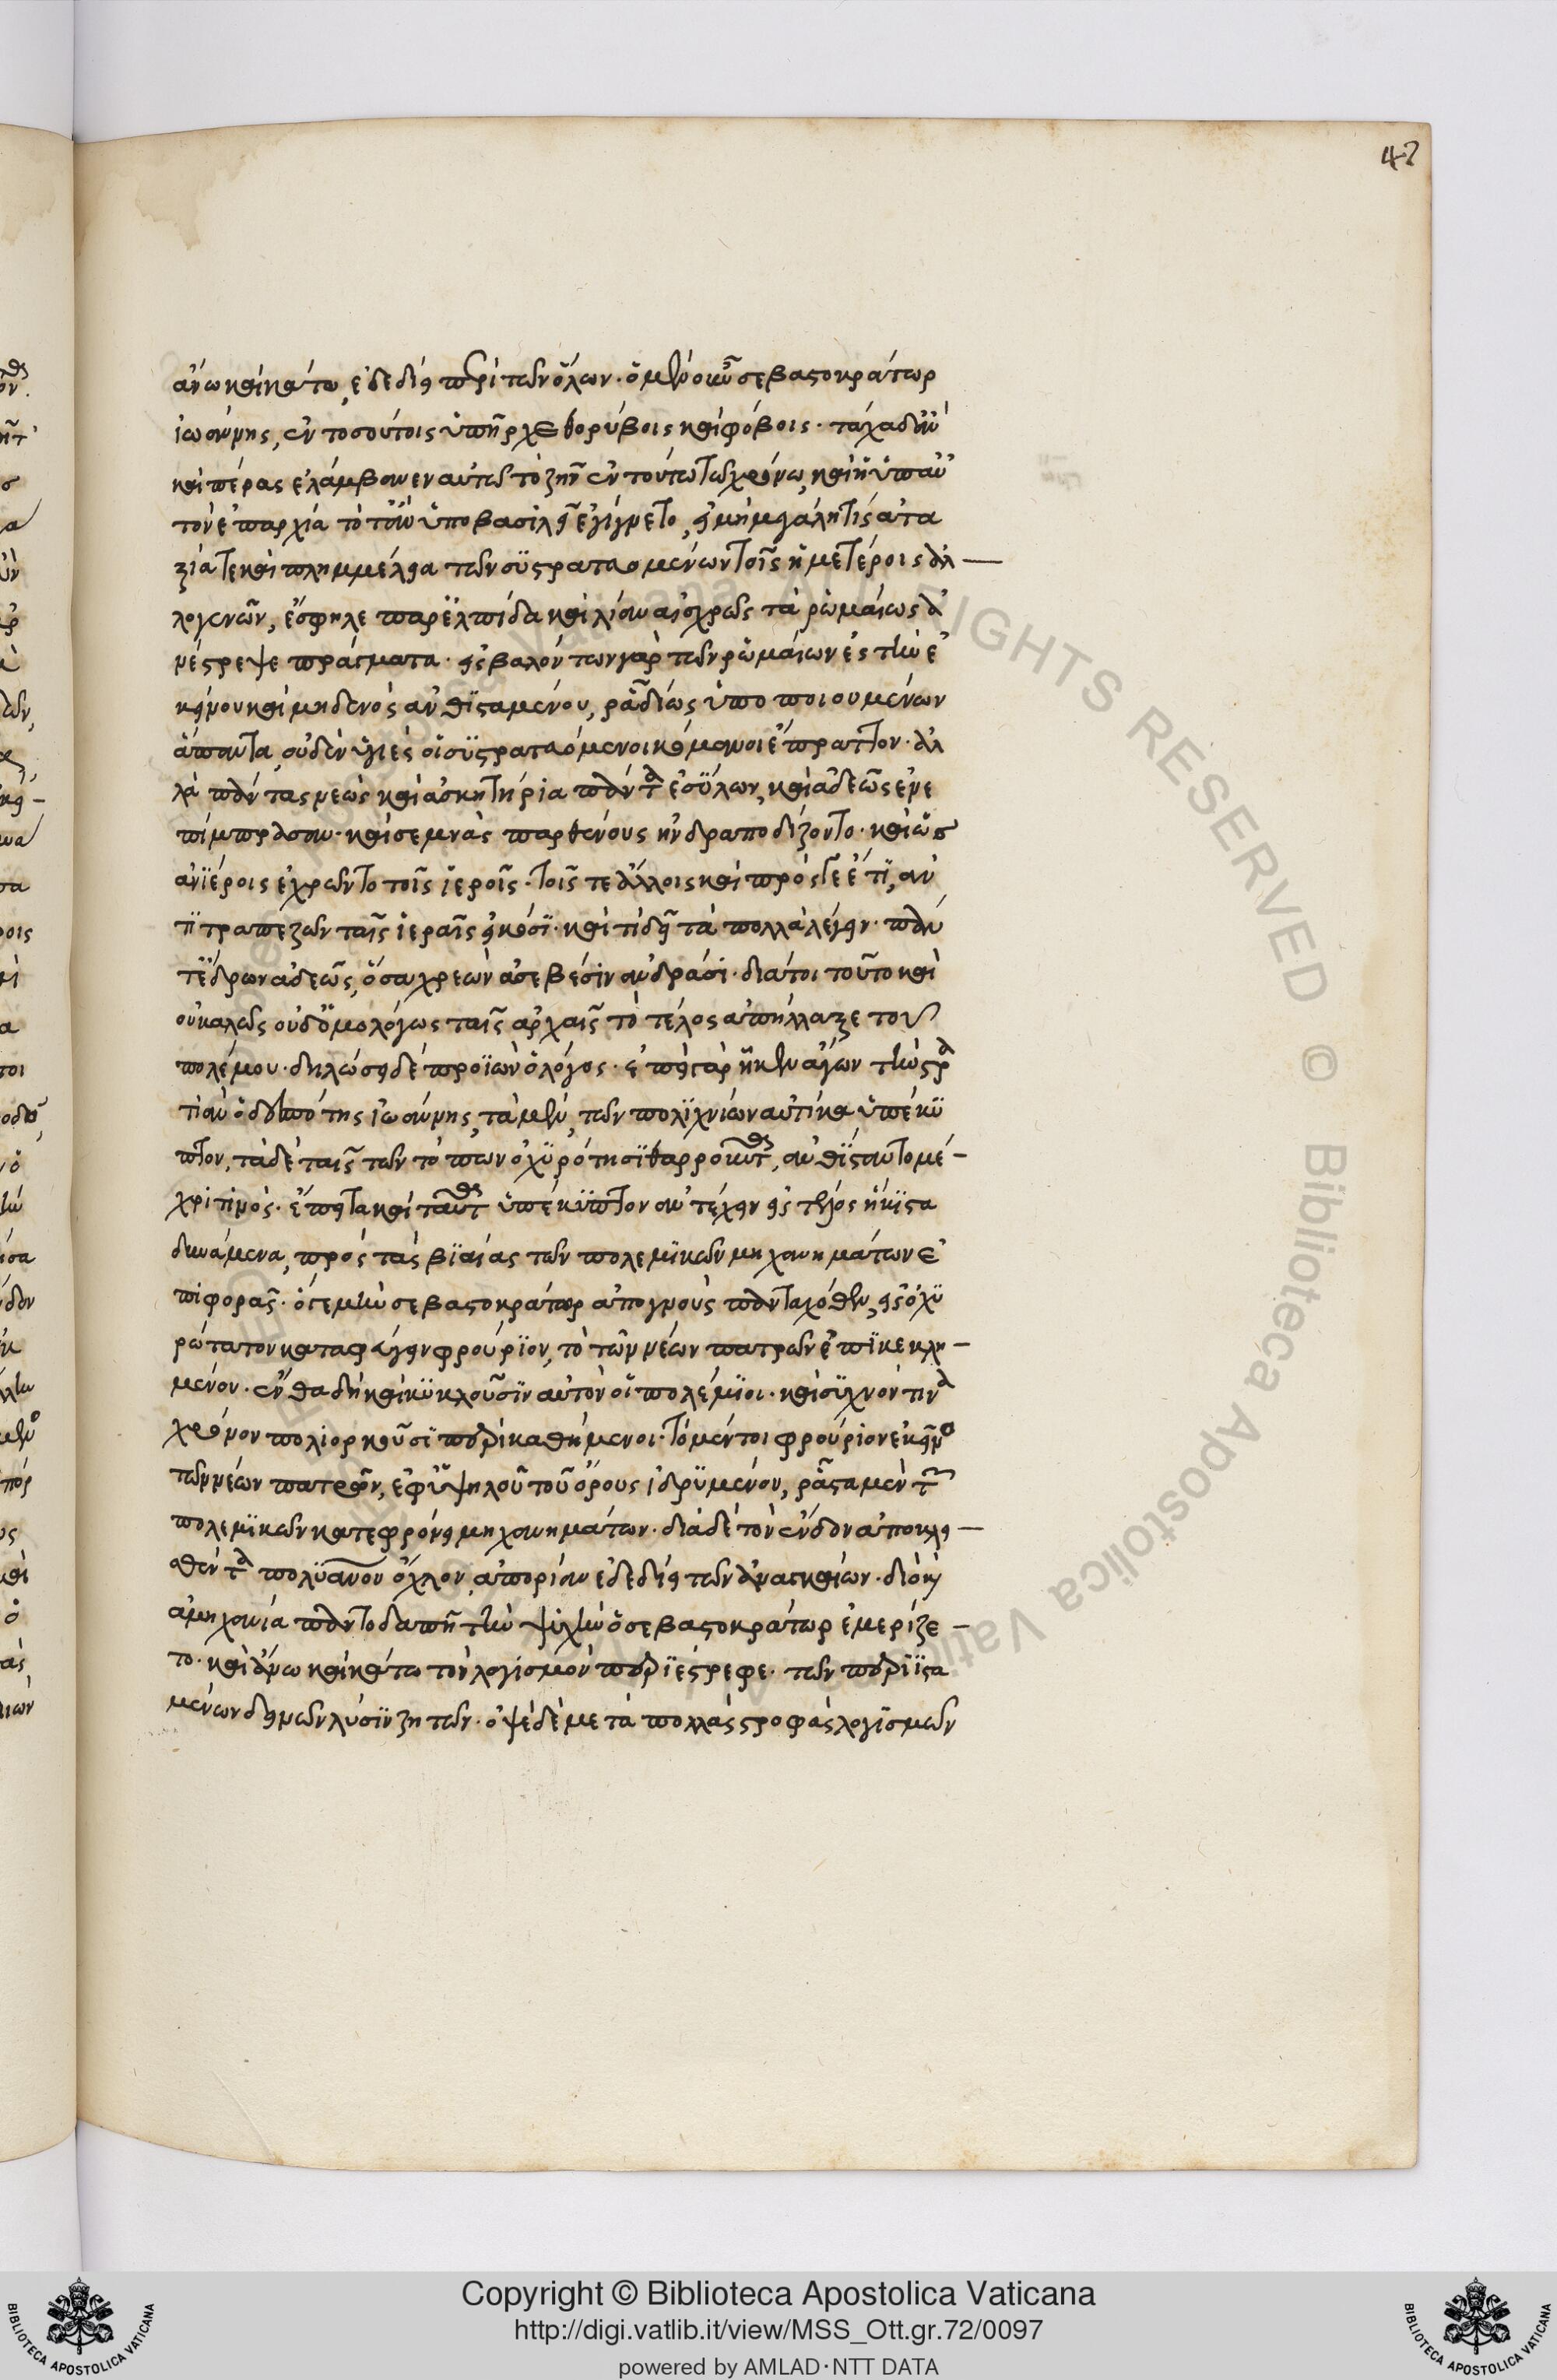 42
ἄνω καὶ κάτω, ἐδεδίει περὶ τῶν ὅλων. ὁ μὲν οὖν σεβαστοκράτωρ
ἰωάννης, ἐν τοσούτοις ὑπῆρχε θορύβοις καὶ φόβοις. τάχα δ' ἂν
καὶ πέρας ἐλάμβανεν αὐτῶ τὸ ζῆν ἐν τούτω τῶ χρόνω, καὶ ἡ ὑπ' αὐ
τὸν ἐπαρχία τὸ πᾶν ὑπὸ βασιλεῖ ἐγίγνετο, εἰ μὴ μεγάλη τίς ἀτα
ξία τε καὶ πλημμέλεια τῶν συστρατευομένων τοῖς ἡμετέροις ἀλ
λογενῶν, ἔσφηλε παρ' ἐλπίδα καὶ λίαν αἰσχρῶς τὰ ῥωμαίων ἀ
νέστρεψε πράγματα. εἰσβαλόντων γὰρ τῶν ῥωμαίων ἐς τὴν ἐ
κείνου καὶ μηδενὸς ἀνθισταμένου, ῥαδίως ὑποποιουμένων
ἅπαντα, οὐδὲν ὑγιὲς οἱ συστρατευόμενοι κόμανοι ἔπραττον. ἀλ
λὰ πάντας νεὼς καὶ ἀσκητήρια πάντα ἐσύλων, καὶ ἀδεῶς ἐνε
πίμπρασαν. καὶ σεμνὰς παρθένους ἠνδραποδίζοντο. καὶ ὡς
ἀνιέροις ἐχρῶντο τοῖς ἱεροῖς. τοῖς τε ἄλλοις καὶ πρός γε ἔτι, ἀν
τὶ τραπεζῶν ταῖς ἱεραῖς εἰκόσι. καὶ τί δεῖ τὰ πολλὰ λέγειν. πάν
τ' ἔδρων ἀδεῶς, ὅσα χρεὼν ἀσεβέσιν ἀνδράσι. διά τοι τοῦτο καὶ
οὐ καλῶς οὐδ' ὁμολόγως ταῖς ἀρχαῖς τὸ τέλος ἀπήλλαξε τοῦ
πολέμου. δηλώσει δὲ προϊὼν ὁ λόγος. ἐπεὶ γὰρ ἧκεν ἄγων τὴν στρα
τιὰν ὁ δεσπότης ἰωάννης, τὰ μὲν, τῶν πολιχνίων αὐτίκα ὑπέκυ
πτον, τὰ δὲ ταῖς τῶν τόπων ὀχυρότησι θαρροῦντες, ἀνθίσταντο μέ
χρι τινός. ἔπειτα καὶ ταῦτα ὑπέκυπτον ἀντέχειν εἰς τέλος ἥκιστα
δυνάμενα, πρὸς τὰς βιαίας τῶν πολεμικῶν μηχανημάτων ἐ
πιφοράς. ὅ τε μὴν σεβαστοκράτωρ ἀπογνοὺς πανταχόθεν, εἰς ὀχυ
ρώτατον καταφεύγει φρούριον, τὸ τῶν νέων πατρῶν ἐπικεκλη
μένον. ἔνθα δὴ καὶ κυκλοῦσιν αὐτὸν οἱ πολέμιοι. καὶ συχνόν τινα
χρόνον πολιορκοῦσι περικαθήμενοι. τὸ μέντοι φρούριον ἐκεῖνο
τῶν νέων πατρῶν, ἐφ' ὑψηλοῦ τοῦ ὄρους ἱδρυμένον, ῥᾷστα μὲν τῶν
πολεμικῶν κατεφρόνει μηχανημάτων. διὰ δὲ τὸν ἔνδον ἀποκλει
σθέντα πολυάνθρωπον ὄχλον, ἀπορίαν ἐδεδίει τῶν ἀναγκαίων. διὸ καὶ
ἀμηχανία παντοδαπῇ τὴν ψυχὴν ὁ σεβαστοκράτωρ ἐμερίζε
το. καὶ ἄνω καὶ κάτω τὸν λογισμὸν περιέστρεφε. τῶν περιϊστα
μένων δεινῶν λύσιν ζητῶν. ὀψὲ δὲ μετὰ πολλὰς στροφὰς λογισμῶν
Copyright © Biblioteca Apostolica Vaticana
http://digi.vatlib.it/view/MSS_Ott.gr.72/0097
powered by AMLAD·NTT DATA